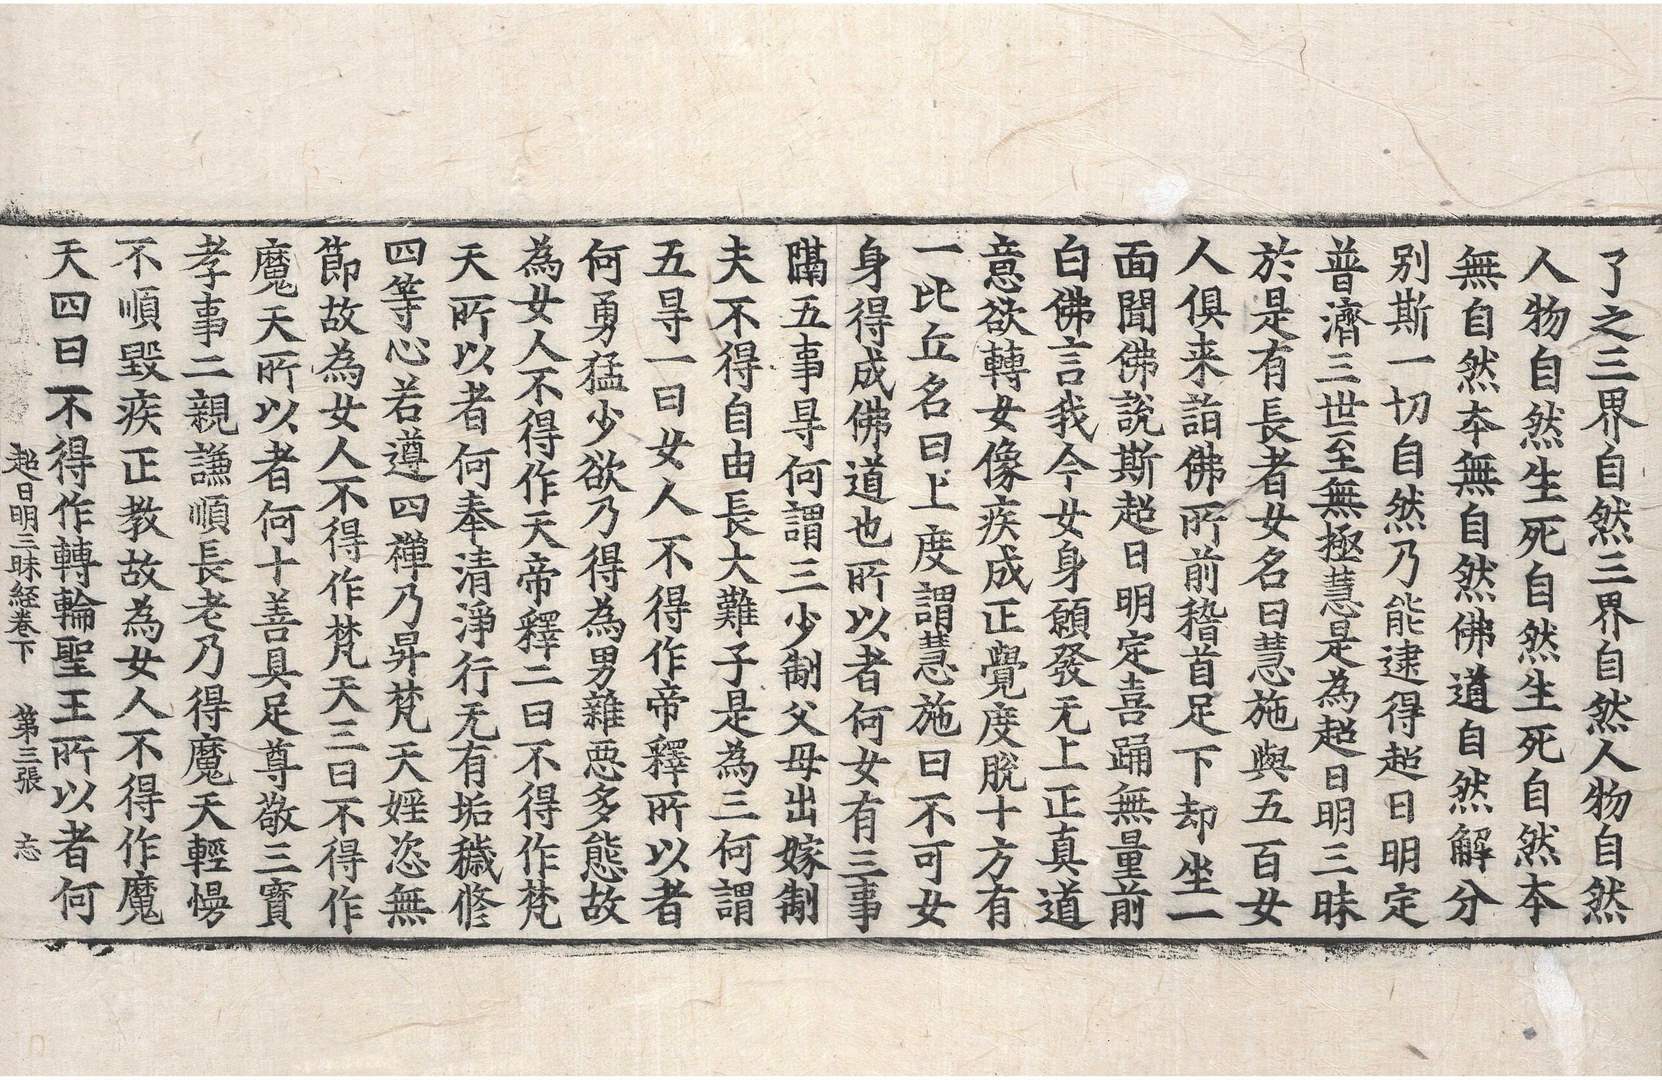 了之三界自然三界自然人物自然
人物自然生死自然生死自然本
無自然本無自然佛道自然解分
别斯一切自然乃能逮得超日明定
普濟三世至無極慧是為超日明三昧
於是有長者女名曰慧施與五百女
人俱来詣佛所前稽首足下却坐一
面聞佛說斯超日明定喜踊無量前
白佛言我今女身願發无上正真道
意欲轉女像疾成正覺度脫十方有
一比丘名曰上度謂慧施曰不可女
身得成佛道也所以者何女有三事
隔五事㝵何謂三少制父母出嫁制
夫不得自由長大難子是為三何謂
五㝵一曰女人不得作帝釋所以者
何勇猛少欲乃得為男雜惡多態故
為女人不得作天帝釋二曰不得作梵
天所以者何奉清淨行无有垢穢修
四等心若遵四禪乃昇梵天婬恣無
節故為女人不得作梵天三曰不得作
魔天所以者何十善具足尊敬三寶
孝事二親謙順長老乃得魔天輕慢
不順毀疾正教故為女人不得作魔
天四曰不得作轉輪聖王所以者何
超日明三昧経卷下 第三張 忘